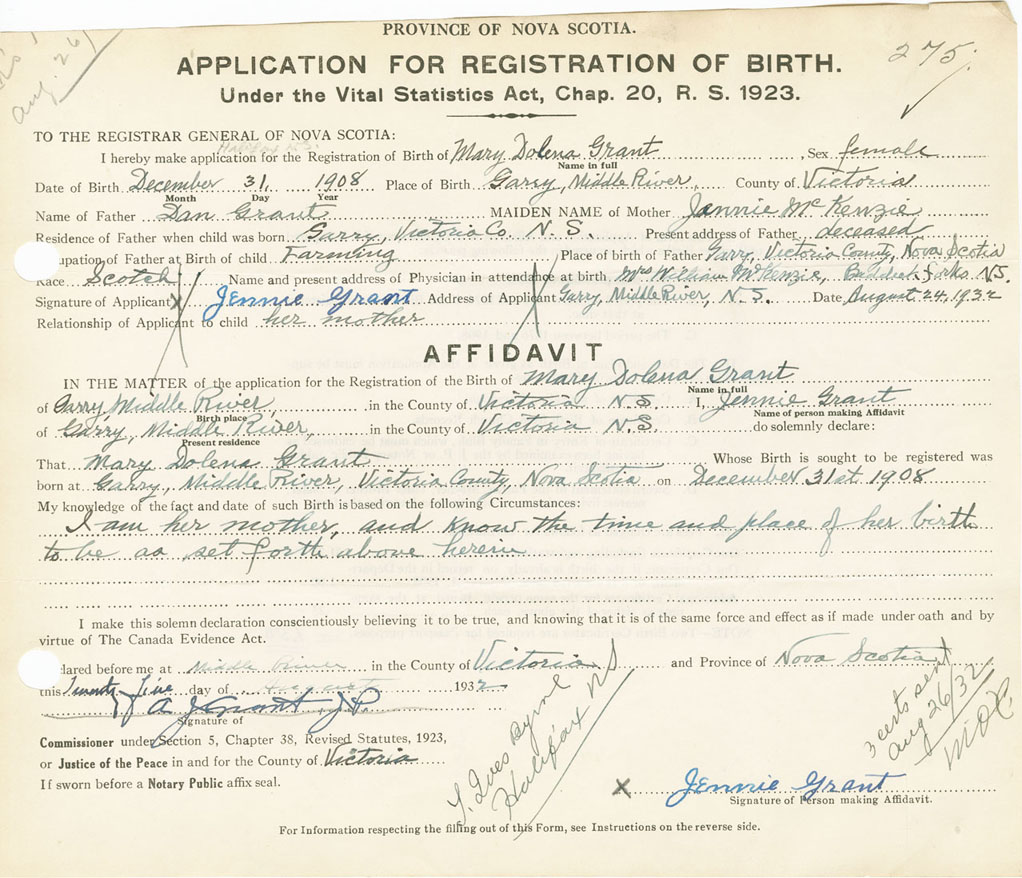 PROVINCE OF NOVA SCOTIA.
275.
Aug. 26/
APPLICATION FOR REGISTRATION OF BIRTH.
Under the Vital Statistics Act, Chap. 20, R. S. 1923.
TO THE REGISTRAR GENERAL OF NOVA SCOTIA:
I hereby make application for the Registration of Birth of Mary Dolena Grant, Sex female
Name in full
Date of Birth December 31 1908 Place of Birth Garry, Middle River, County of Victoria
Month Day Year
Name of Father Dan Grant MAIDEN NAME of Mother Jennie McKenzie
Residence of Father when child was born Garry, Victoria Co. N. S. Present address of Father deceased
upation of Father at Birth of child Farming Place of birth of Father Garry, Victoria County, Nova Scotia
Race Scotch Name and present address of Physician in attendance at birth Mrs William McKenzie, Forks, N.S.
Signature of Applicant X Jennie Grant Address of Applicant Garry, Middle River, N. S. Date August 24, 1932
Relationship of Applicant to child her mother
AFFIDAVIT
IN THE MATTER of the application for the Registration of the Birth of Mary Dolena Grant
Name in full
of Garry Middle River, in the County of Victoria N. S. I, Jennie Grant
Birth place Name of person making Affidavit
of Garry, Middle River, in the County of Victoria N. S. do solemnly declare:
Present residence
That Mary Dolena Grant Whose Birth is sought to be registered was
born at Garry, Middle River, Victoria County, Nova Scotia on December 31st 1908
My knowledge of the fact and date of such Birth is based on the following Circumstances:
I am her mother, and know the time and place of her birth
to be as set forth above herein
I make this solemn declaration conscientiously believing it to be true, and knowing that it is of the same force and effect as if made under oath and by
virtue of The Canada Evidence Act.
clared before me at Middle River in the County of Victoria N S and Province of Nova Scotia
this Twenty Five day of August 1932
A J Grant J.P.
Signature of
Commissioner under Section 5, Chapter 38, Revised Statutes, 1923,
or Justice of the Peace in and for the County of Victoria
If sworn before a Notary Public affix seal.
L. Ives Byrne
Halifax NS
3 certs sent
Aug 26/32
X Jennie Grant
Signature of Person making Affidavit.
For Information respecting the filling out of this Form, see Instructions on the reverse side.